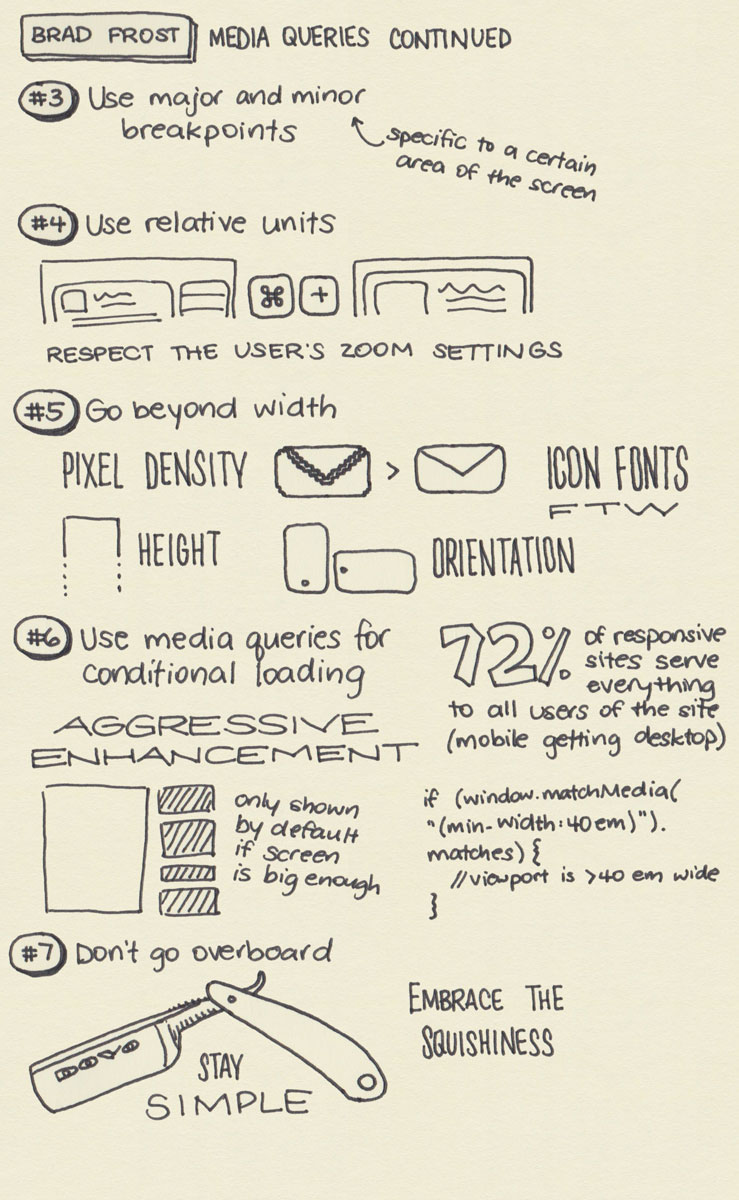 BRAD FROST MEDIA QUERIES CONTINUED
#3 Use major and minor
breakpoints
specific to a certain
area of the screen
#4 Use relative units
⌘ +
RESPECT THE USER'S ZOOM SETTINGS
#5 Go beyond width
PIXEL DENSITY > ICON FONTS
FTW
HEIGHT ORIENTATION
#6 Use media queries for
conditional loading
72% of responsive
sites serve
everything
to all users of the site
(mobile getting desktop)
AGGRESSIVE
ENHANCEMENT
only shown
by default
if screen
is big enough
if (window.matchMedia(
"(min-width:40em)").
matches) {
//viewport is >40 em wide
}
#7 Don't go overboard
DOVO
STAY
SIMPLE
EMBRACE THE
SQUISHINESS